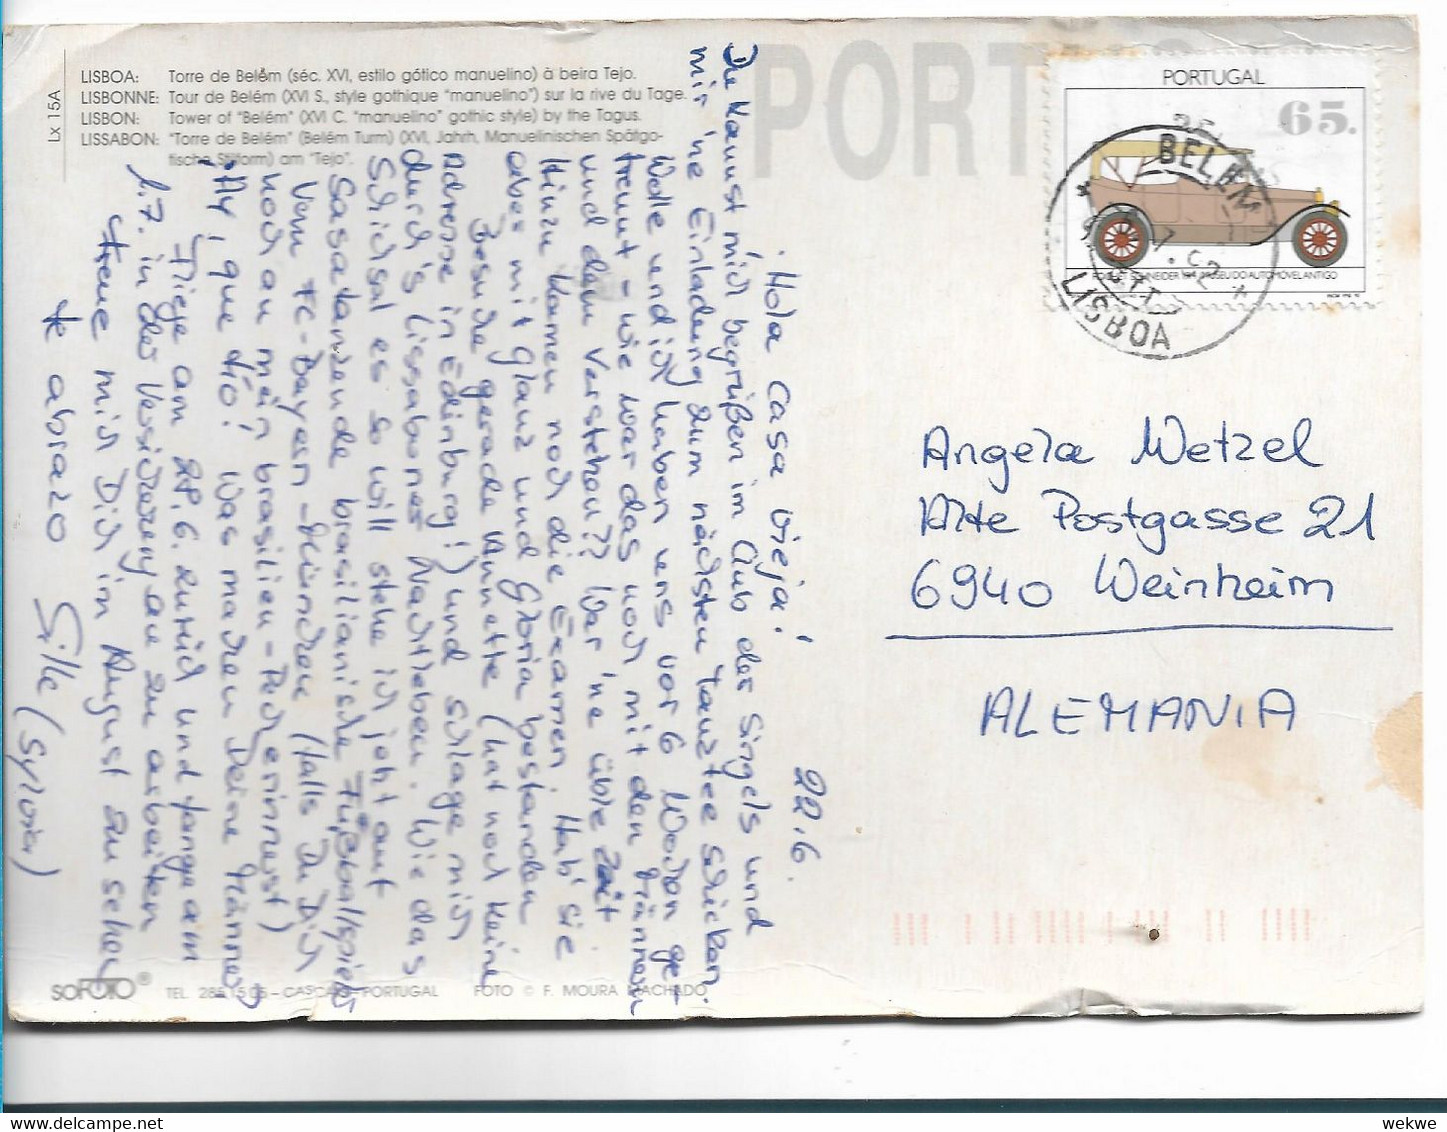 LISBOA: Torre de Belém (séc. XVI, estilo gótico manuelino) à beira Tejo.
LISBONNE: Tour de Belém (XVI S., style gothique "manuelino") sur la rive du Tage.
LISBON: Tower of "Belém" (XVI C. "manuelino" gothic style) by the Tagus.
LISSABON: "Torre de Belém" (Belém Turm) (XVI, Jahrh, Manuelinischen Spätgo-
tische Stilform) am "Tejo".
Lx 15A
PORT
PORTUGAL
65.
SCHNEIDER MUSEU DO AUTOMÓVEL ANTIGO
BELEM
LISBOA
22.6.
¡Hola Casa vieja!
Du kannst mich begrüßen im Club der Singels und
mir 'ne Einladung zum nächsten Tanztee schicken.
Wolle und ich haben uns vor 6 Wochen ge-
trennt - wie war das noch mit den Männern
und dem Verstehen?? War 'ne üble Zeit
Hinzu kamen noch die Examen. Hab' sie
aber mit Glanz und Gloria bestanden
Besuche gerade Annette (hat noch keine
Adresse in Edinburg!) und schlage mich
durch's Lissaboner Nachtleben. Wie das
Schicksal es so will stehe ich jetzt auf
Sasa tanzende brasilianische Fußballspieler
vom FC-Bayern-München (falls Du Dich
noch an mein brasilien-Pech erinnerst)
¡Ay, que tío! Was machen Deine Männer
Fliege am 28.6. zurück und fange am
1.7. in der Versicherung an zu arbeiten
Freue mich Dich im August zu sehen
te abrazo Sille (Sylvia)
Angela Wetzel
Alte Postgasse 21
6940 Weinheim
ALEMANIA
SOFOTO ® TEL. - CASCAIS - PORTUGAL FOTO © F. MOURA MACHADO
wekwe